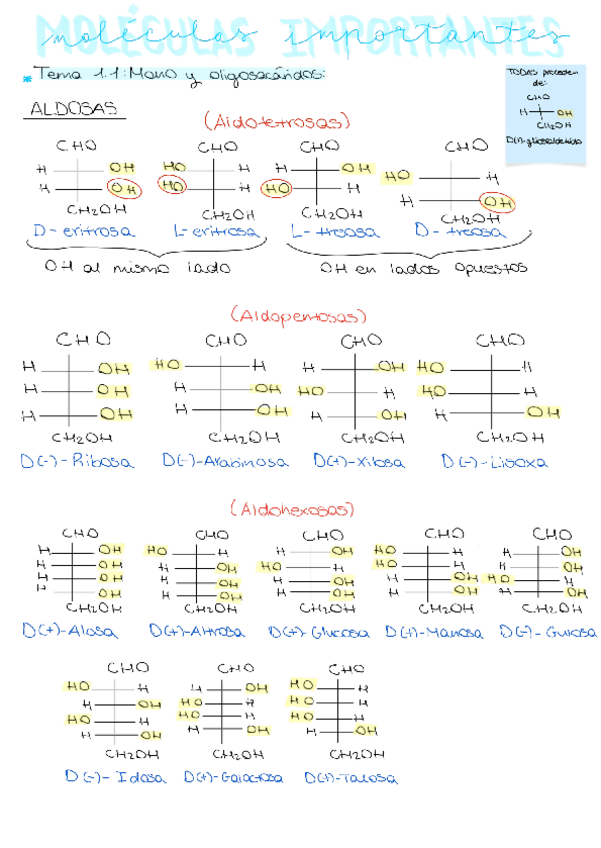 MOLÉCULAS IMPORTANTES
moléculas importantes
* Tema 1.1: Mono y oligosacáridos:
TODAS proceden
de:
CHO
H OH
CH2OH
D(+)-gliceraldehído
ALDOSAS
(Aldotetrosas)
CHO CHO CHO CHO
H OH HO H H OH HO H
H OH HO H HO H H OH
CH2OH CH2OH CH2OH CH2OH
D-eritrosa L-eritrosa L-treosa D-treosa
OH al mismo lado OH en lados opuestos
(Aldopentosas)
CHO CHO CHO CHO
H OH HO H H OH HO H
H OH H OH HO H HO H
H OH H OH H OH H OH
CH2OH CH2OH CH2OH CH2OH
D(-)-Ribosa D(-)-Arabinosa D(+)-Xilosa D(-)-Lisoxa
(Aldohexosas)
CHO CHO CHO CHO CHO
H OH HO H H OH HO H H OH
H OH H OH HO H HO H H OH
H OH H OH H OH H OH HO H
H OH H OH H OH H OH H OH
CH2OH CH2OH CH2OH CH2OH CH2OH
D(+)-Alosa D(+)-Altrosa D(+)-Glucosa D(+)-Manosa D(-)-Gulosa
CHO CHO CHO
HO H H OH HO H
H OH HO H HO H
HO H HO H HO H
H OH H OH H OH
CH2OH CH2OH CH2OH
D(-)-Idosa D(+)-Galactosa D(+)-Talosa